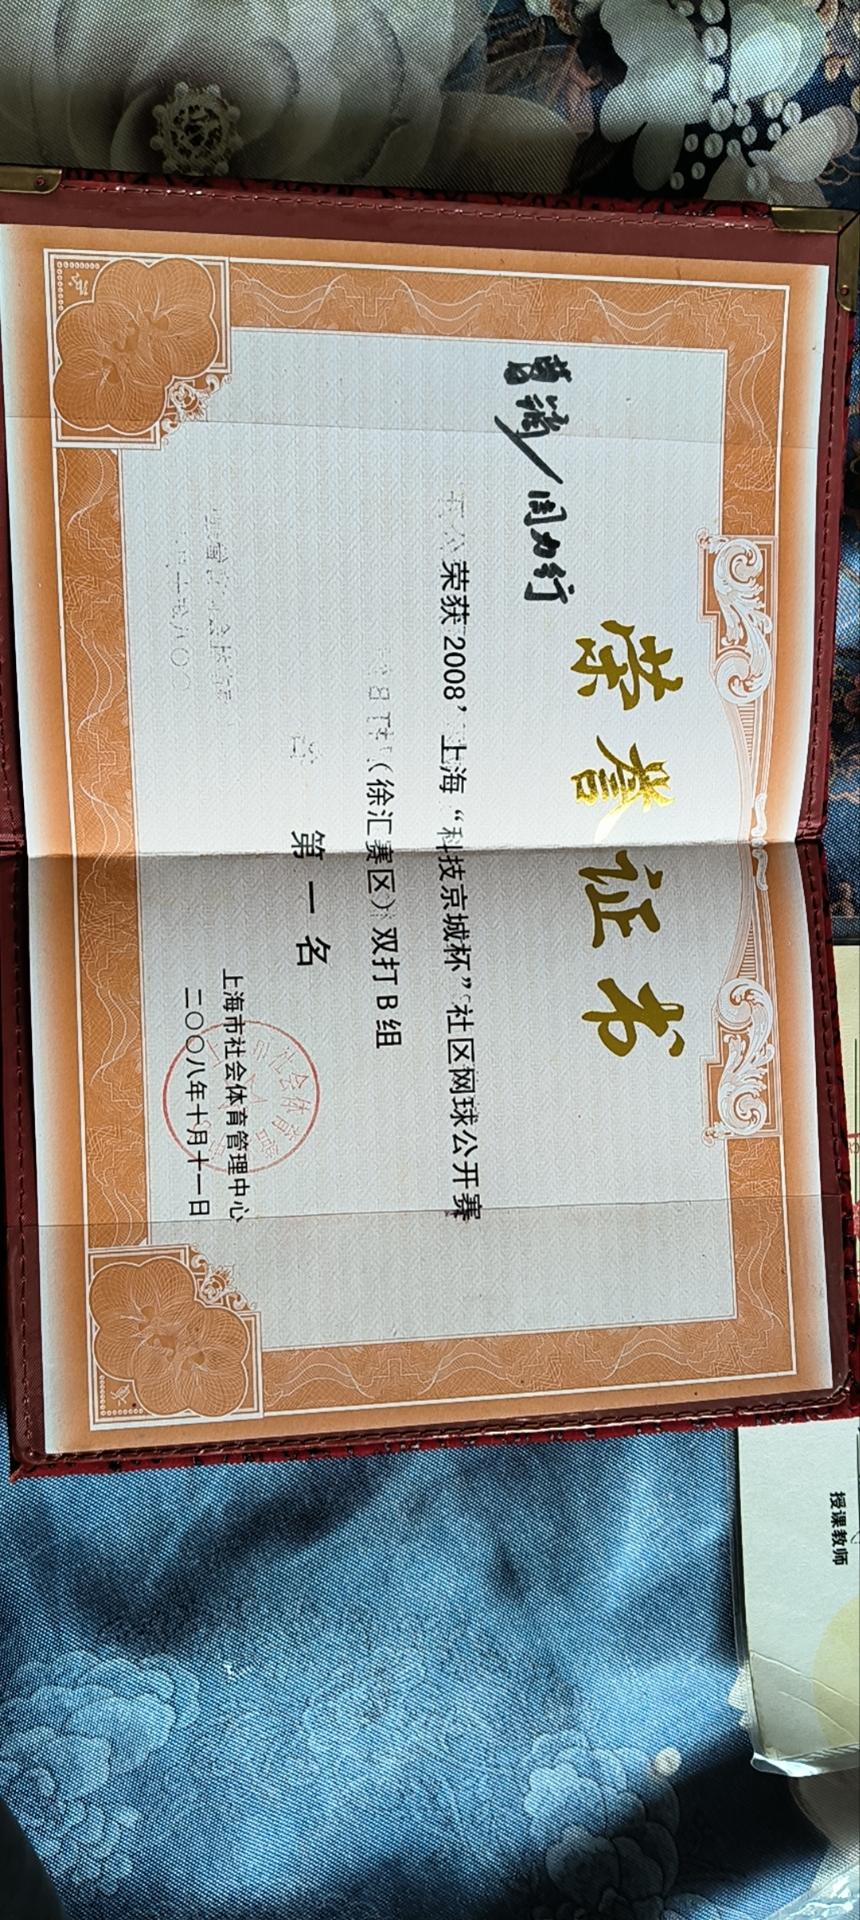 荣誉证书
周力行
荣获2008’上海“科技京城杯”社区网球公开赛
（徐汇赛区）双打B组
第一名
上海市社会体育管理中心
二〇〇八年十月十一日
授课教师